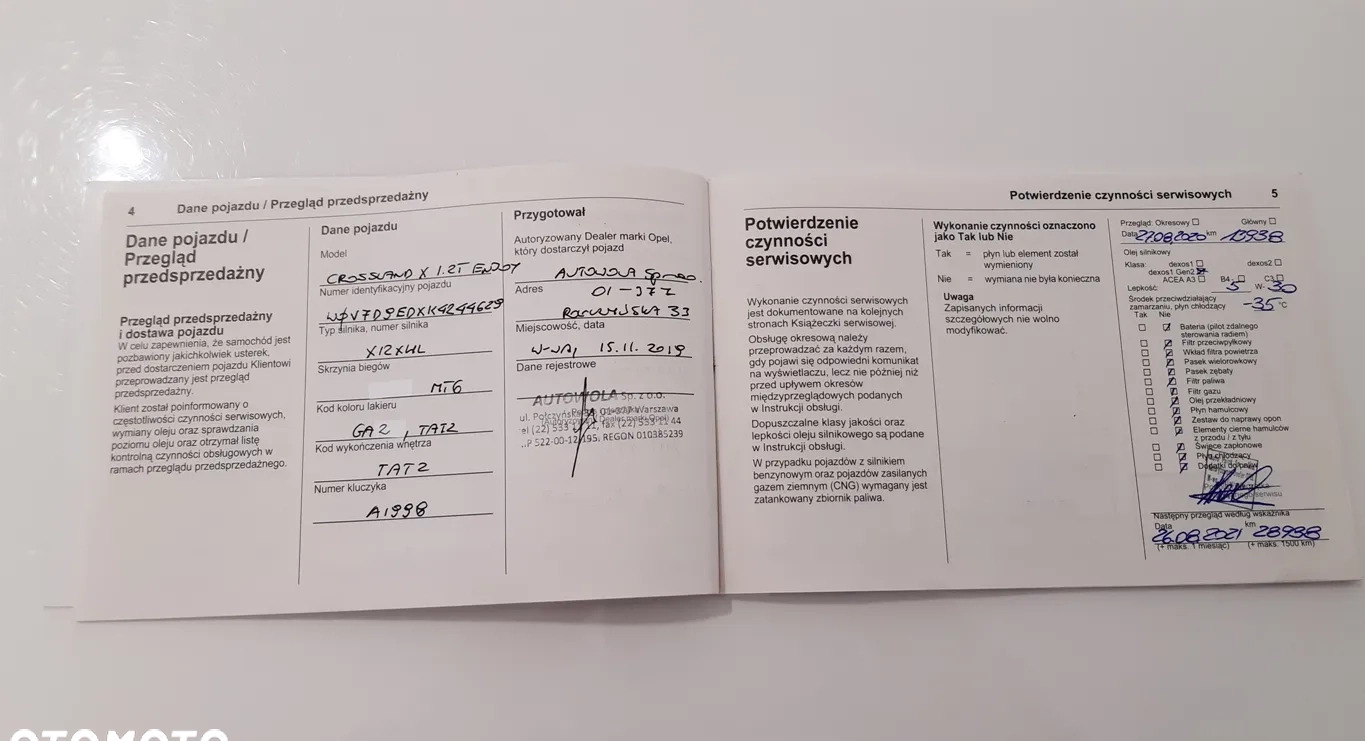 4
Dane pojazdu / Przegląd przedsprzedażny
Dane pojazdu /
Przegląd
przedsprzedażny
Przegląd przedsprzedażny
i dostawa pojazdu
W celu zapewnienia, że samochód jest
pozbawiony jakichkolwiek usterek,
przed dostarczeniem pojazdu Klientowi
przeprowadzany jest przegląd
przedsprzedażny.
Klient został poinformowany o
częstotliwości czynności serwisowych,
wymiany oleju oraz sprawdzania
poziomu oleju oraz otrzymał listę
kontrolną czynności obsługowych w
ramach przeglądu przedsprzedażnego.
Dane pojazdu
Model
CROSSLAND X 1.2T ENJOY
Numer identyfikacyjny pojazdu
W0V7D9EDXK4244629
Typ silnika, numer silnika
X12XHL
Skrzynia biegów
MT6
Kod koloru lakieru
GA2, TAT2
Kod wykończenia wnętrza
TAT2
Numer kluczyka
A1998
Przygotował
Autoryzowany Dealer marki Opel,
który dostarczył pojazd
AUTOWOLA Sp. z o.o.
Adres
01-377
33
Miejscowość, data
W-WA, 15.11.2019
Dane rejestrowe
AUTOWOLA Sp. z o.o.
ul. Połczyńska 33 01-377 Warszawa
tel (22) 533 fax (22) 533 11 44
REGON 010385239
Potwierdzenie czynności serwisowych
5
Potwierdzenie
czynności
serwisowych
Wykonanie czynności serwisowych
jest dokumentowane na kolejnych
stronach Książeczki serwisowej.
Obsługę okresową należy
przeprowadzać za każdym razem,
gdy pojawi się odpowiedni komunikat
na wyświetlaczu, lecz nie później niż
przed upływem okresów
międzyprzeglądowych podanych
w Instrukcji obsługi.
Dopuszczalne klasy jakości oraz
lepkości oleju silnikowego są podane
w Instrukcji obsługi.
W przypadku pojazdów z silnikiem
benzynowym oraz pojazdów zasilanych
gazem ziemnym (CNG) wymagany jest
zatankowany zbiornik paliwa.
Wykonanie czynności oznaczono
jako Tak lub Nie
Tak = płyn lub element został
wymieniony
Nie = wymiana nie była konieczna
Uwaga
Zapisanych informacji
szczegółowych nie wolno
modyfikować.
Przegląd: Okresowy Główny
Data 27.08.2020 km 13938
Olej silnikowy
Klasa: dexos1 dexos2
dexos1 Gen2
ACEA A3 B4 C3
Lepkość: 5 W- 30
Środek przeciwdziałający
zamarzaniu, płyn chłodzący -35 °C
Tak Nie
Bateria (pilot zdalnego
sterowania radiem)
Filtr przeciwpyłkowy
Wkład filtra powietrza
Pasek wielorowkowy
Pasek zębaty
Filtr paliwa
Filtr gazu
Olej przekładniowy
Płyn hamulcowy
Zestaw do naprawy opon
Elementy cierne hamulców
z przodu / z tyłu
Świece zapłonowe
Płyn chłodzący
Następny przegląd według wskaźnika
Data km
26.08.2021 28938
(+ maks. 1 miesiąc) (+ maks. 1500 km)
OTOMOTO